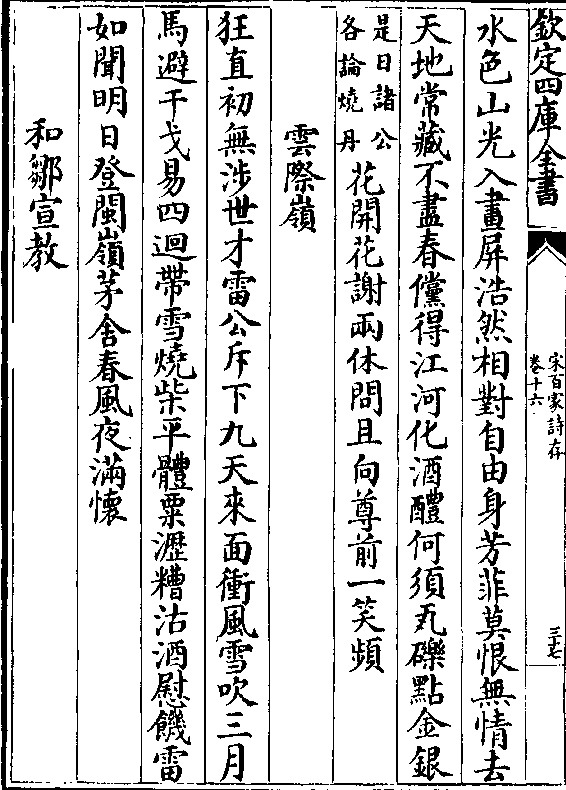 欽定四庫全書
宋百家詩存
卷十六
三七
水色山光入畫屏浩然相對自由身芳菲莫恨無情去
天地常藏不盡春儻得江河化酒醴何須瓦礫點金銀
是日諸公
各論燒丹
花開花謝兩休問且向尊前一笑頻
雲際嶺
狂直初無涉世才雷公斥下九天來面衝風雪吹三月
馬避干戈易四迴帶雪燒柴平體粟瀝糟沽酒慰饑雷
如聞明日登閩嶺茅舍春風夜滿懷
和鄒宣教